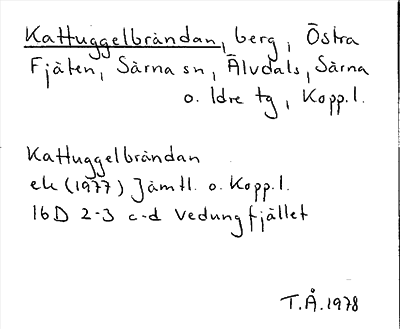 Kattuggelbrändan, berg, Östra
Fjäten, Särna sn, Älvdals, Särna
o. Idre tg, Kopp.l.
Kattuggelbrändan
ek (1977) Jämtl. o. Kopp.l.
16D 2-3 c-d Vedungfjället
T.Å. 1978